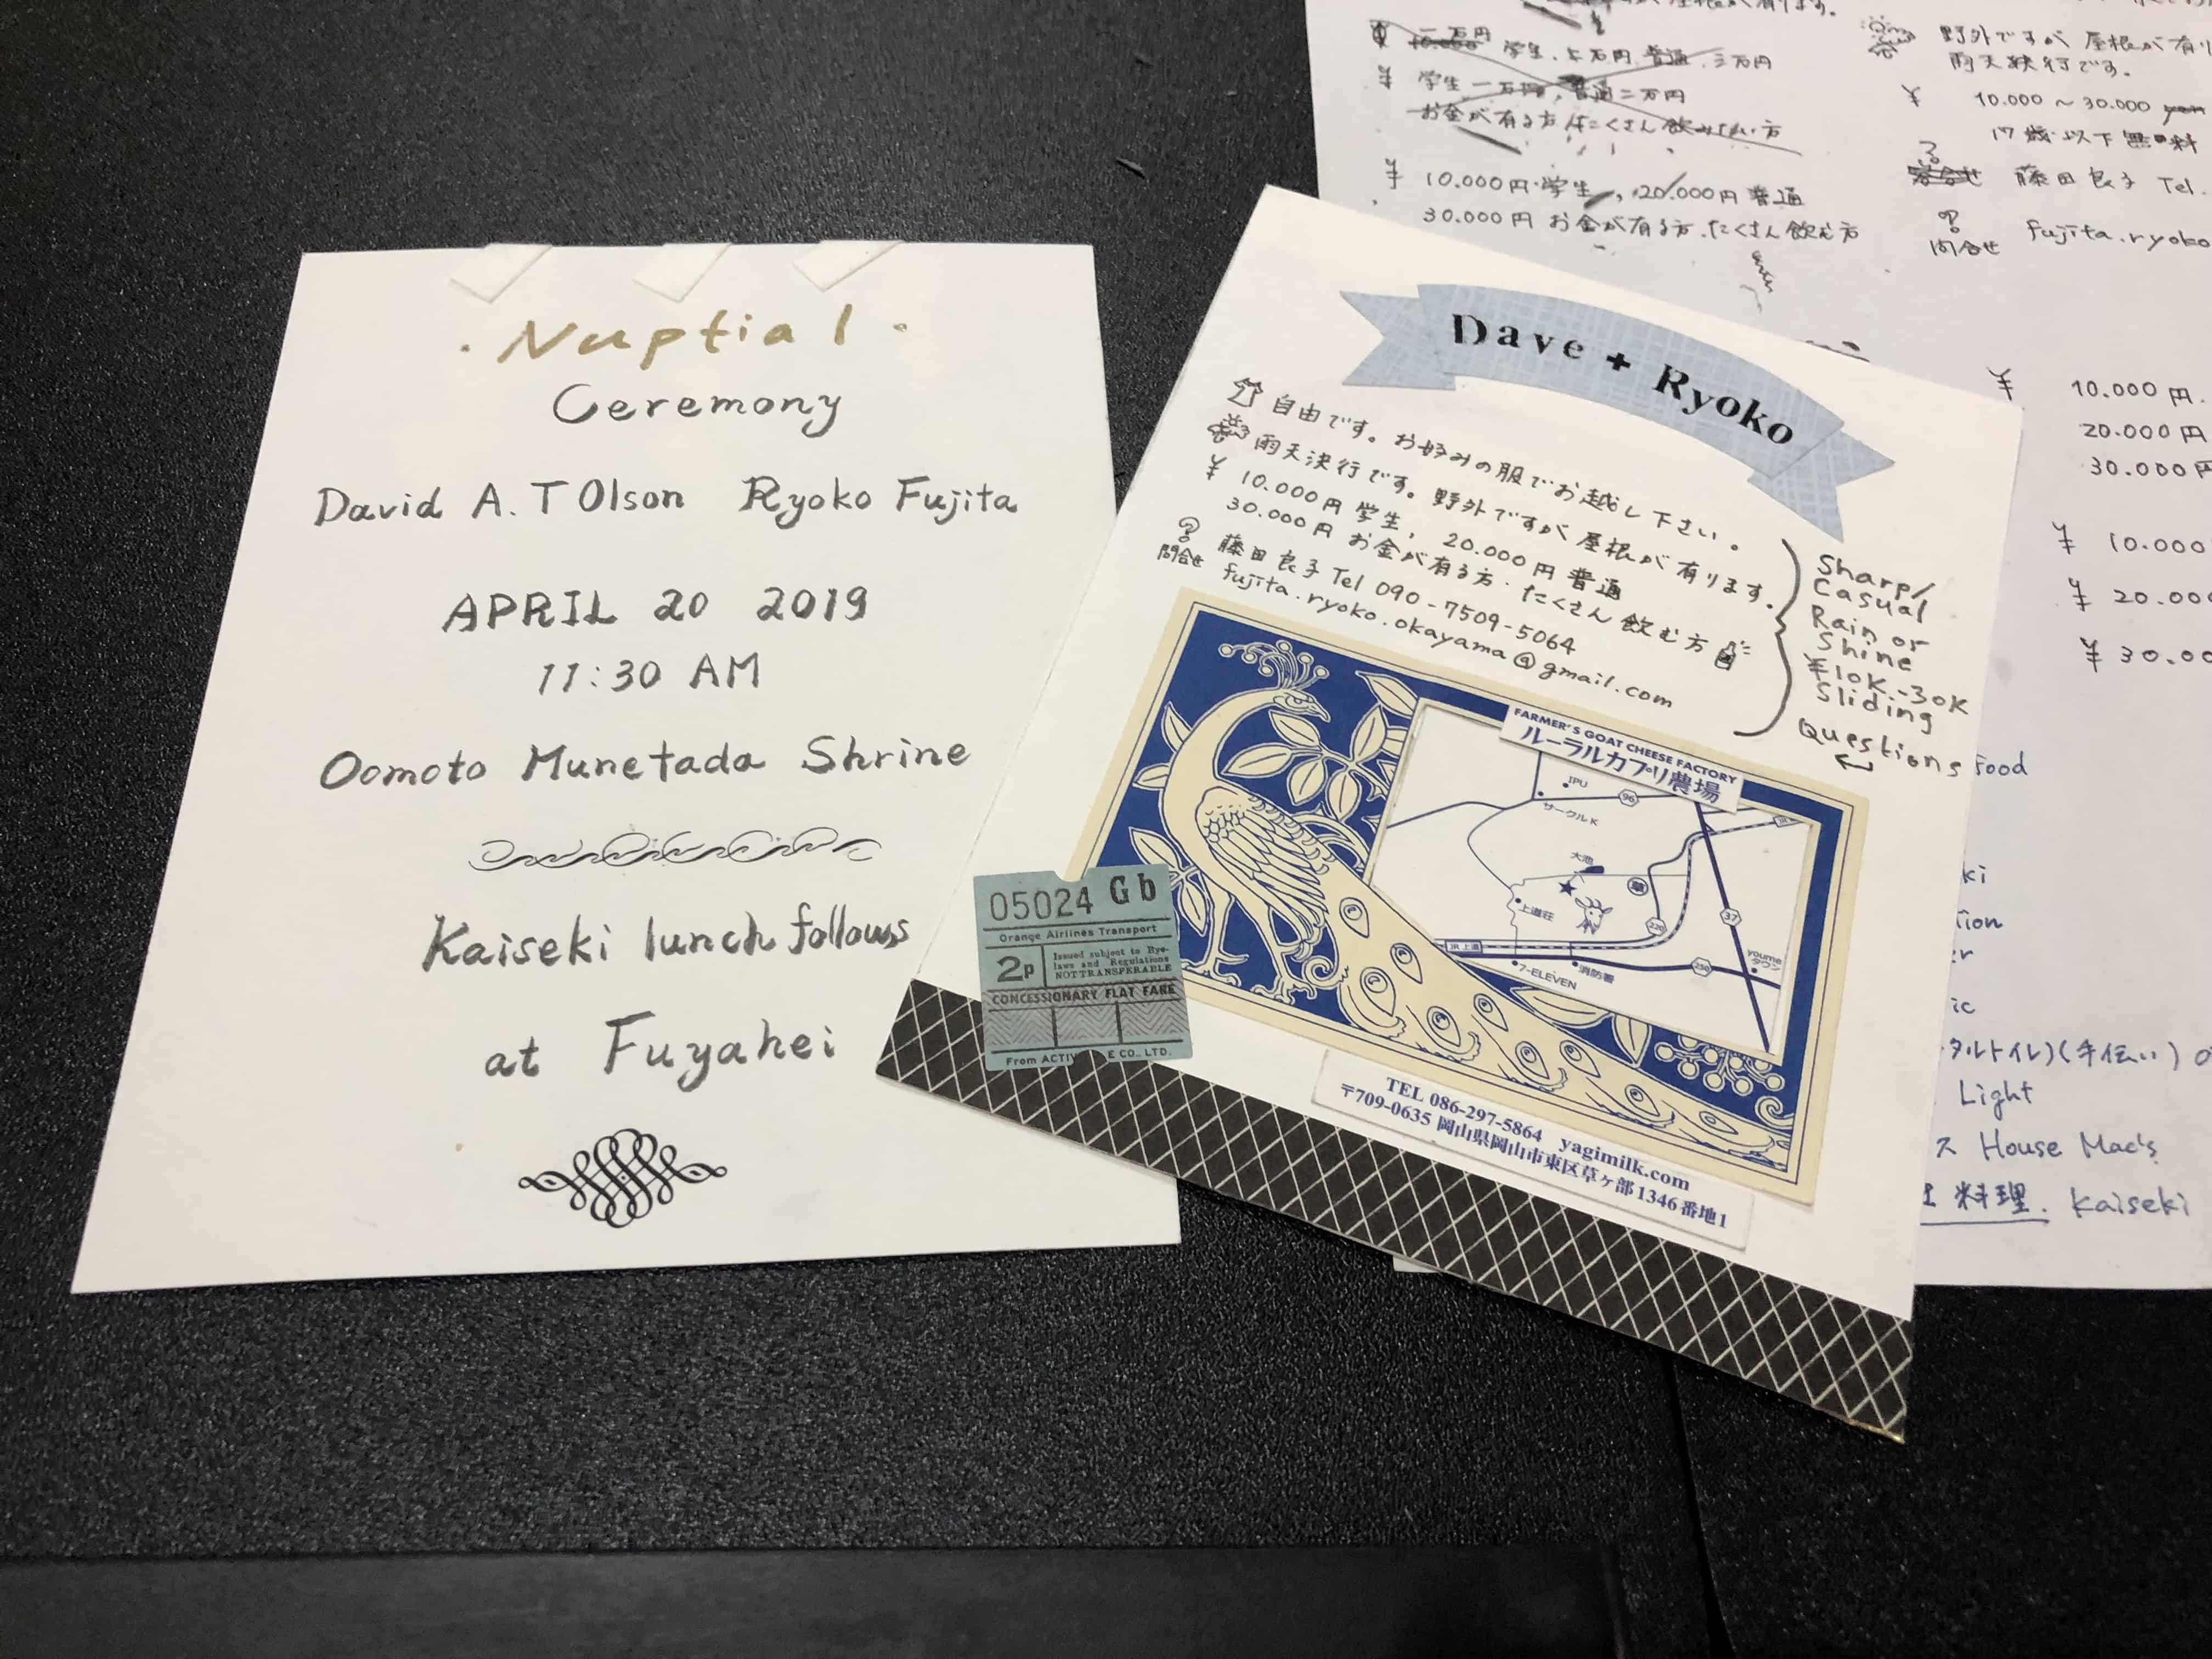 · Nuptial ·
Ceremony
David A. T Olson Ryoko Fujita
APRIL 20 2019
11:30 AM
Oomoto Munetada Shrine
Kaiseki lunch follows
at Fuyahei
Dave + Ryoko
自由です。お好みの服でお越し下さい。
雨天決行です。野外ですが屋根が有ります。
¥ 10.000円 学生, 20.000円 普通
30.000円 お金が有る方・たくさん飲む方
? 問合せ 藤田良子 Tel 090-7509-5064
fujita.ryoko.okayama@gmail.com
Sharp/
Casual
Rain or
Shine
¥10K-30K
Sliding
Questions
FARMER'S GOAT CHEESE FACTORY
ルーラルカプリ農場
IPU
96
サークルK
大池
草
上道荘
220
37
JR 上道
250
7-ELEVEN
消防署
youme
タウン
TEL 086-297-5864 yagimilk.com
〒709-0635 岡山県岡山市東区草ヶ部1346番地1
05024 Gb
Orange Airlines Transport
2p
Issued subject to Bye-
laws and Regulations
NOT TRANSFERABLE
CONCESSIONARY FLAT FARE
From ACTIV E CO., LTD.
¥ 学生 一万円, 普通二万円
お金が有る方
¥ 10.000円学生, 20.000円 普通
30.000円 お金が有る方.たくさん飲む方
野外ですが 屋根が有り
雨天決行です。
¥ 10.000 ~ 30.000 yen
17歳以下無料
藤田良子 Tel.
? 問合せ fujita.ryoko
¥ 10.000円.
20.000円
30.000円
¥ 10.000
¥ 20.000
¥ 30.00
Food
ki
tion
er
ic
タルトイレ)(手伝い)
Light
ス House Mac's
料理. Kaiseki